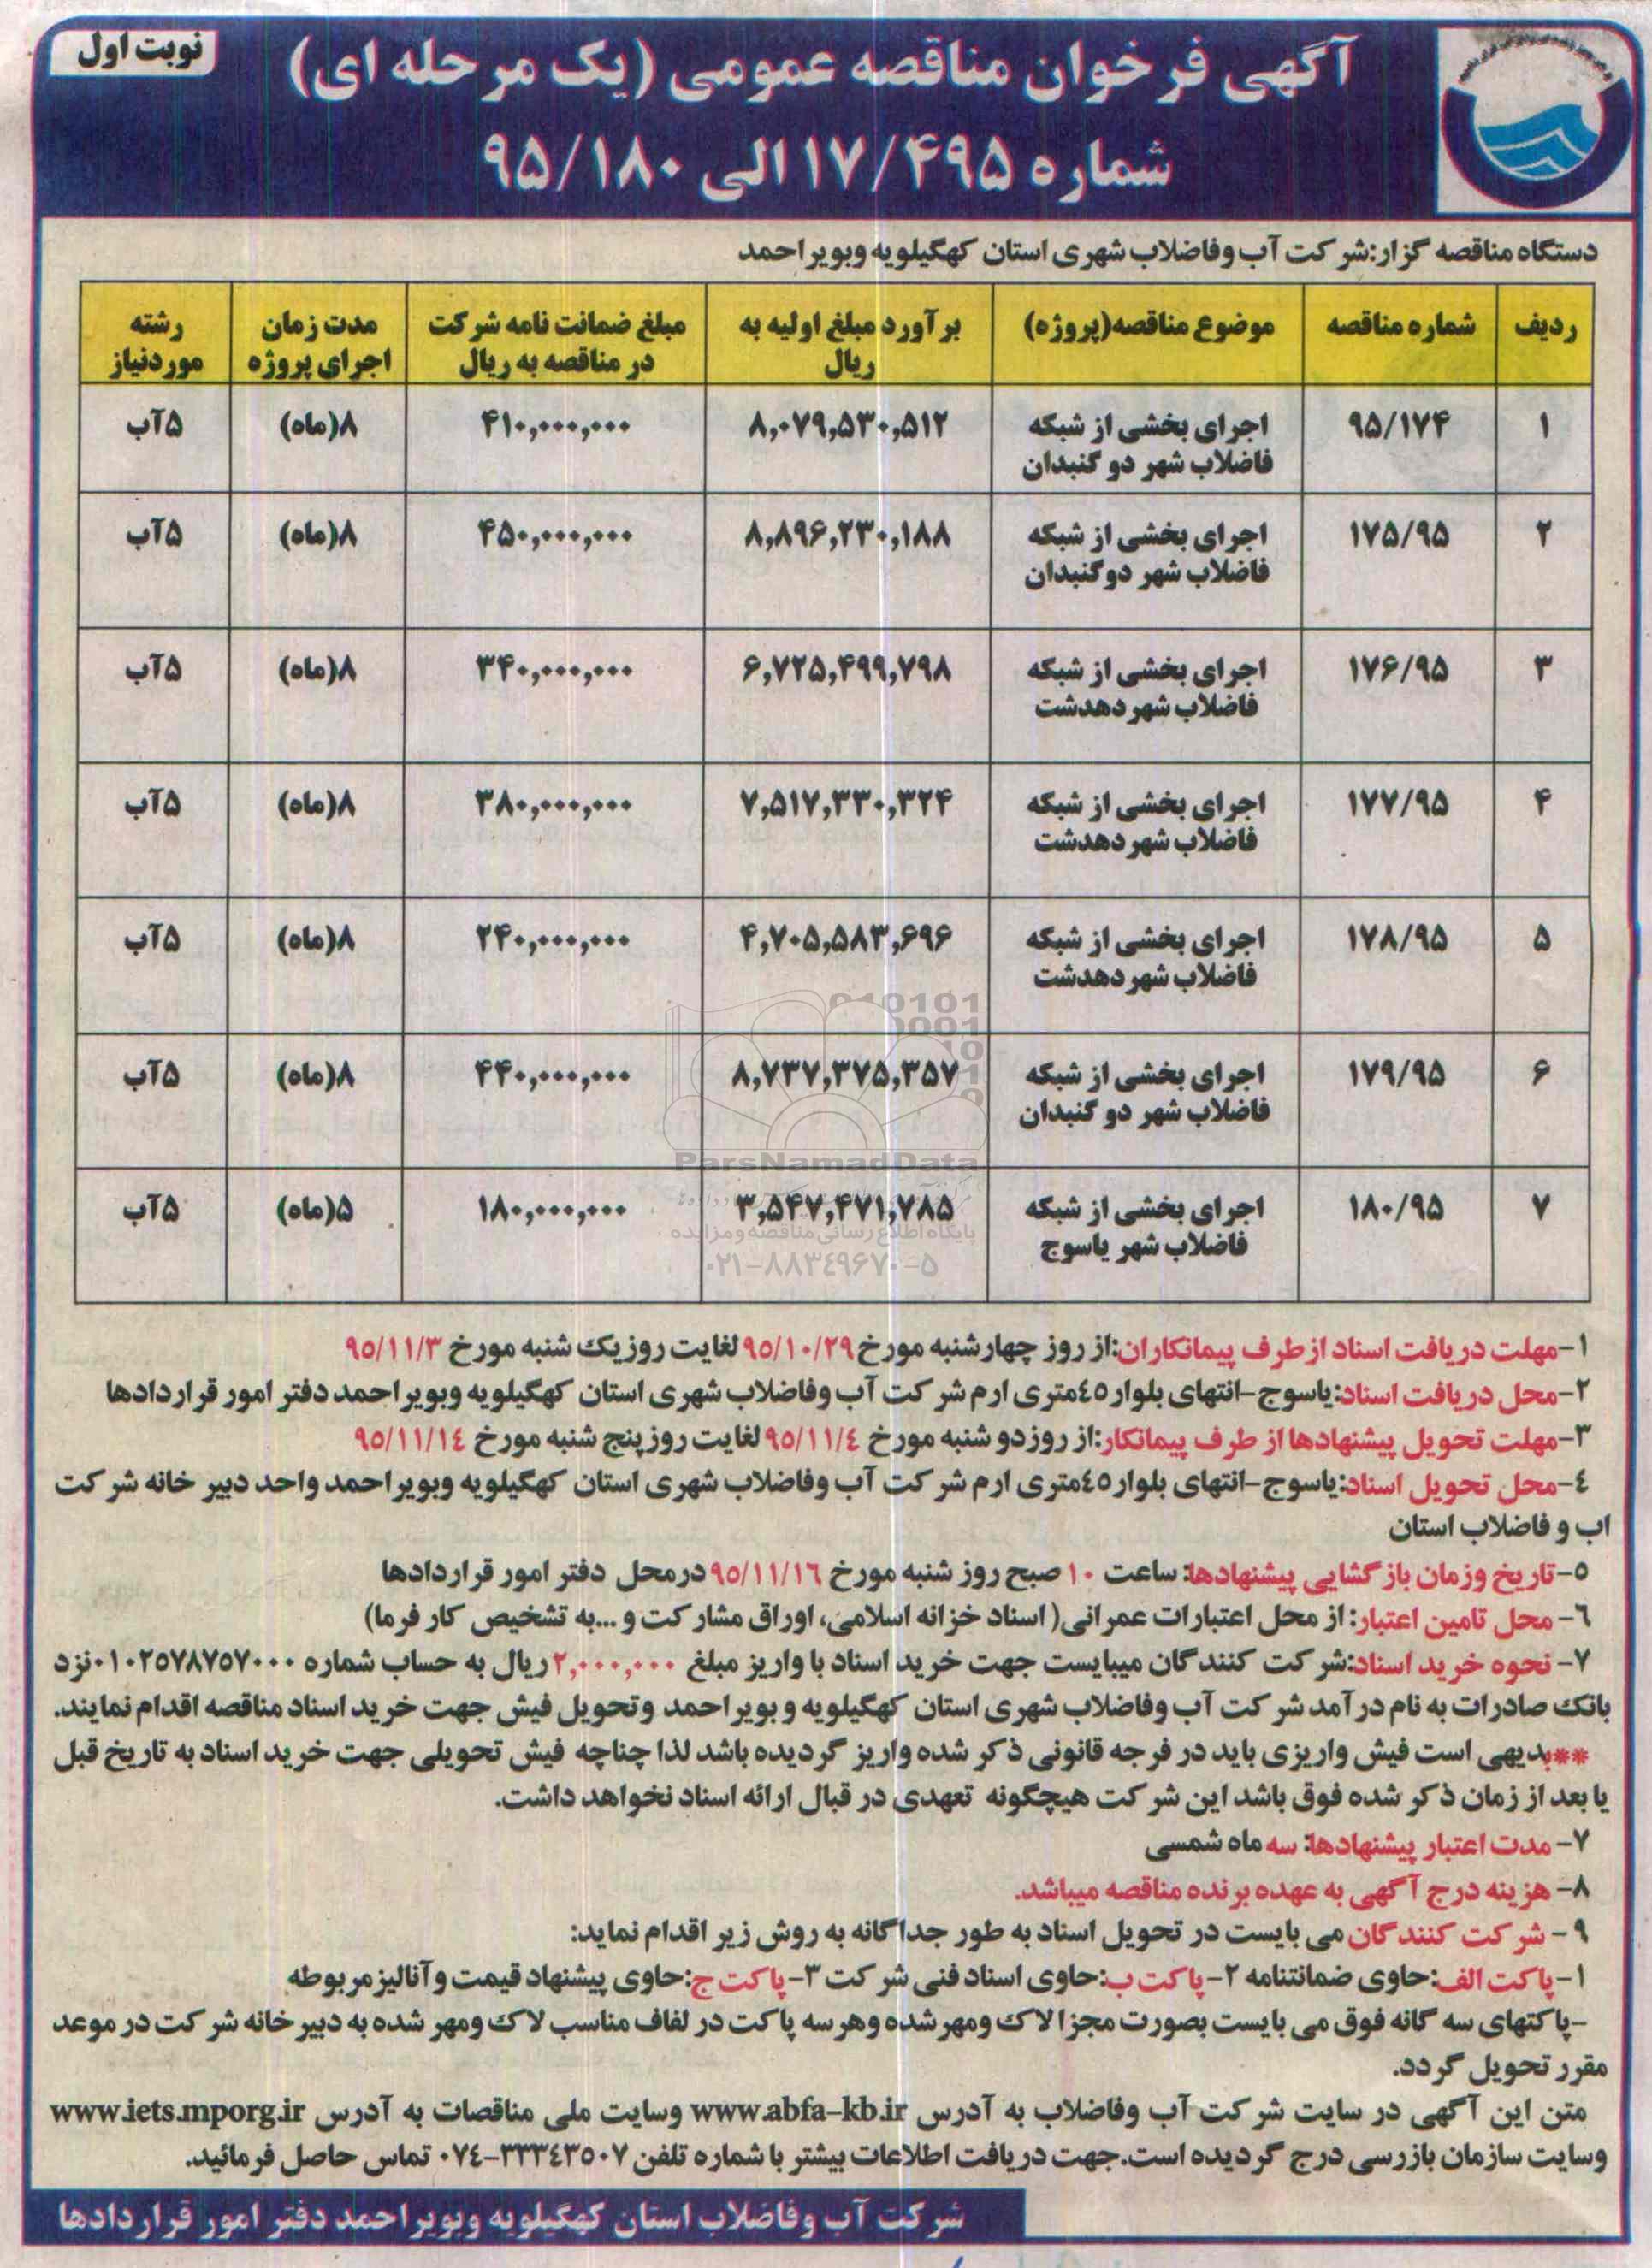 نوبت اول
آگهی فرخوان مناقصه عمومی (یک مرحله ای)
شماره ۱۷/۴۹۵ الی ۹۵/۱۸۰
دستگاه مناقصه گزار:شرکت آب وفاضلاب شهری استان کهگیلویه وبویراحمد
ردیف شماره مناقصه موضوع مناقصه(پروژه) برآورد مبلغ اولیه به ریال مبلغ ضمانت نامه شرکت در مناقصه به ریال مدت زمان اجرای پروژه رشته موردنیاز
۱ ۹۵/۱۷۴ اجرای بخشی از شبکه فاضلاب شهر دو گنبدان ۸,۰۷۹,۵۳۰,۵۱۲ ۴۱۰,۰۰۰,۰۰۰ ۸(ماه) ۵آب
۲ ۱۷۵/۹۵ اجرای بخشی از شبکه فاضلاب شهر دوگنبدان ۸,۸۹۶,۲۳۰,۱۸۸ ۴۵۰,۰۰۰,۰۰۰ ۸(ماه) ۵آب
۳ ۱۷۶/۹۵ اجرای بخشی از شبکه فاضلاب شهر دهدشت ۶,۷۲۵,۴۹۹,۷۹۸ ۳۴۰,۰۰۰,۰۰۰ ۸(ماه) ۵آب
۴ ۱۷۷/۹۵ اجرای بخشی از شبکه فاضلاب شهر دهدشت ۷,۵۱۷,۳۳۰,۳۲۴ ۳۸۰,۰۰۰,۰۰۰ ۸(ماه) ۵آب
۵ ۱۷۸/۹۵ اجرای بخشی از شبکه فاضلاب شهر دهدشت ۴,۷۰۵,۵۸۳,۶۹۶ ۲۴۰,۰۰۰,۰۰۰ ۸(ماه) ۵آب
۶ ۱۷۹/۹۵ اجرای بخشی از شبکه فاضلاب شهر دو گنبدان ۸,۷۳۷,۳۷۵,۳۵۷ ۴۴۰,۰۰۰,۰۰۰ ۸(ماه) ۵آب
۷ ۱۸۰/۹۵ اجرای بخشی از شبکه فاضلاب شهر یاسوج ۳,۵۴۷,۴۷۱,۷۸۵ ۱۸۰,۰۰۰,۰۰۰ ۵(ماه) ۵آب
ParsNamadData
پایگاه اطلاع رسانی مناقصه و مزایده
۰۲۱-۸۸۳۴۹۶۷۰-۵
۱-مهلت دریافت اسناد ازطرف پیمانکاران:از روز چهارشنبه مورخ ۹۵/۱۰/۲۹ لغایت روزیک شنبه مورخ ۹۵/۱۱/۳
۲-محل دریافت اسناد:یاسوج-انتهای بلوار۴۵متری ارم شرکت آب وفاضلاب شهری استان کهگیلویه وبویراحمد دفتر امور قراردادها
۳-مهلت تحویل پیشنهادها از طرف پیمانکار:از روزدو شنبه مورخ ۹۵/۱۱/۴ لغایت روزپنج شنبه مورخ ۹۵/۱۱/۱۴
۴-محل تحویل اسناد:یاسوج-انتهای بلوار۴۵متری ارم شرکت آب وفاضلاب شهری استان کهگیلویه وبویراحمد واحد دبیر خانه شرکت
اب و فاضلاب استان
۵-تاریخ وزمان بازگشایی پیشنهادها: ساعت ۱۰ صبح روز شنبه مورخ ۹۵/۱۱/۱۶ درمحل دفتر امور قراردادها
۶- محل تامین اعتبار: از محل اعتبارات عمرانی( اسناد خزانه اسلامی، اوراق مشارکت و ...به تشخیص کار فرما)
۷- نحوه خرید اسناد:شرکت کنندگان میبایست جهت خرید اسناد با واریز مبلغ ۲,۰۰۰,۰۰۰ ریال به حساب شماره ۰۱۰۲۵۷۸۷۵۷۰۰۰ نزد
بانک صادرات به نام درآمد شرکت آب وفاضلاب شهری استان کهگیلویه و بویراحمد وتحویل فیش جهت خرید اسناد مناقصه اقدام نمایند.
**بدیهی است فیش واریزی باید در فرجه قانونی ذکر شده واریز گردیده باشد لذا چناچه فیش تحویلی جهت خرید اسناد به تاریخ قبل
یا بعد از زمان ذکر شده فوق باشد این شرکت هیچگونه تعهدی در قبال ارائه اسناد نخواهد داشت.
۷- مدت اعتبار پیشنهادها: سه ماه شمسی
۸- هزینه درج آگهی به عهده برنده مناقصه میباشد.
۹- شرکت کنندگان می بایست در تحویل اسناد به طور جداگانه به روش زیر اقدام نماید:
۱-پاکت الف:حاوی ضمانتنامه ۲-پاکت ب:حاوی اسناد فنی شرکت ۳-پاکت ج:حاوی پیشنهاد قیمت وآنالیز مربوطه
-پاکتهای سه گانه فوق می بایست بصورت مجزا لاک ومهر شده وهرسه پاکت در لفاف مناسب لاک ومهر شده به دبیر خانه شرکت در موعد
مقرر تحویل گردد.
متن این آگهی در سایت شرکت آب وفاضلاب به آدرس www.abfa-kb.ir وسایت ملی مناقصات به آدرس www.iets.mporg.ir
وسایت سازمان بازرسی درج گردیده است.جهت دریافت اطلاعات بیشتر با شماره تلفن ۰۷۴-۳۳۳۴۳۵۰۷ تماس حاصل فرمائید.
شرکت آب وفاضلاب استان کهگیلویه وبویراحمد دفتر امور قراردادها